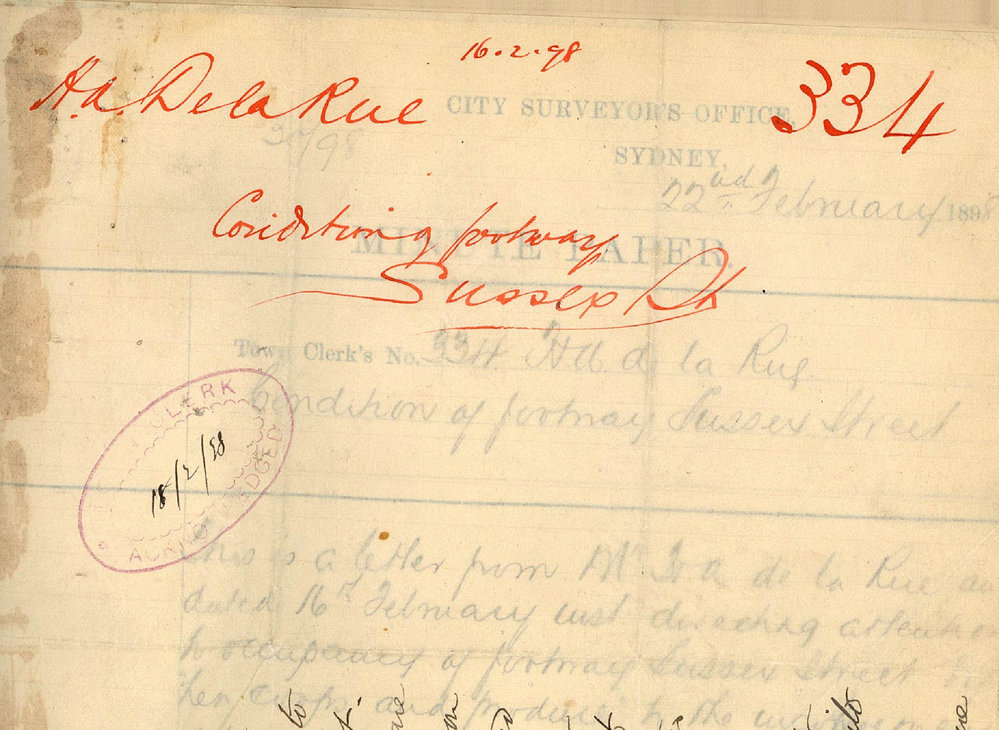 16.2.98
H.A. De la Rue
CITY SURVEYOR'S OFFICE,
334
SYDNEY,
22nd February 189
Condition of footway
MINUTE PAPER.
Sussex St
Town Clerk's No. 334 H A. de la Rue
Condition of footway Sussex Street
CLERK
18/2/98
ACKNOWLEDGED
This is a letter from Mr H A de la Rue
dated 16th February inst directing attention
to occupancy of footway Sussex Street
and produce to the
to